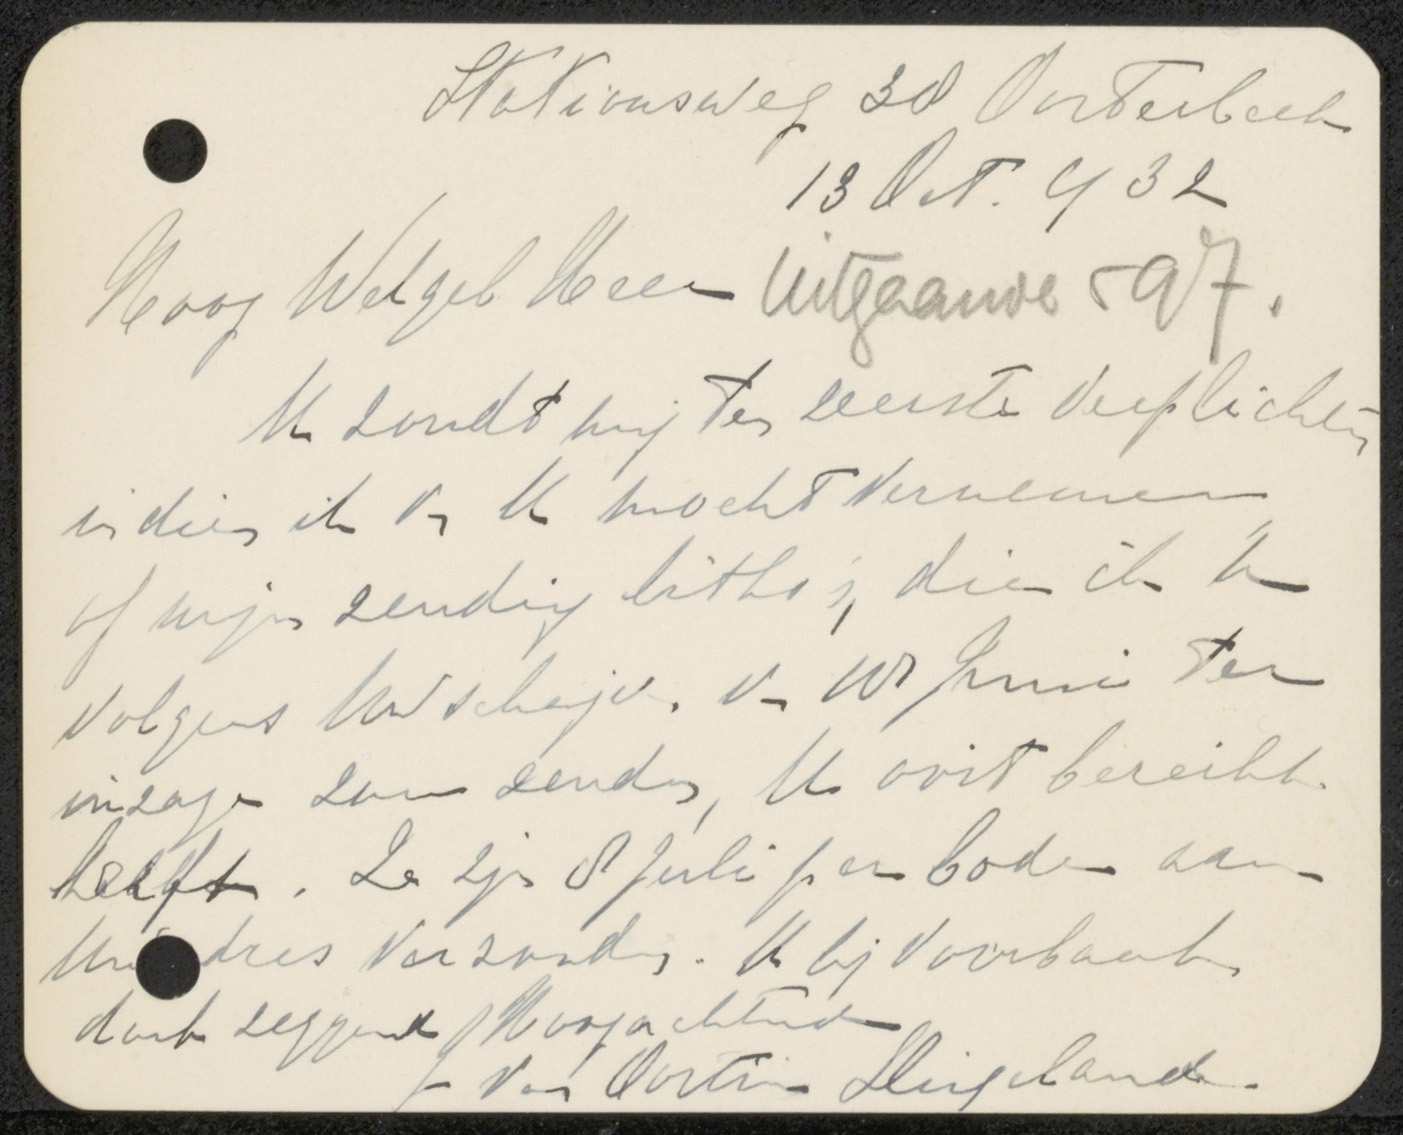 Stationsweg 38 Oosterbeek
13 Oct. 932
Hoog WelgeB Heer Uitgaande 597.
U zoudt mij ten zeerste verplichten
indien ik v. U mocht vernemen
of mijn zending litho's, die ik U
volgens Uw schrijv. v. Juni ter
inzage zou zenden, U ooit bereikt
heeft. Ze zijn 8 Juli per bode aan
Uw dres verzonden. U bij voorbaat
dank zeggend Hoogachtend
J van Oosten Slingeland